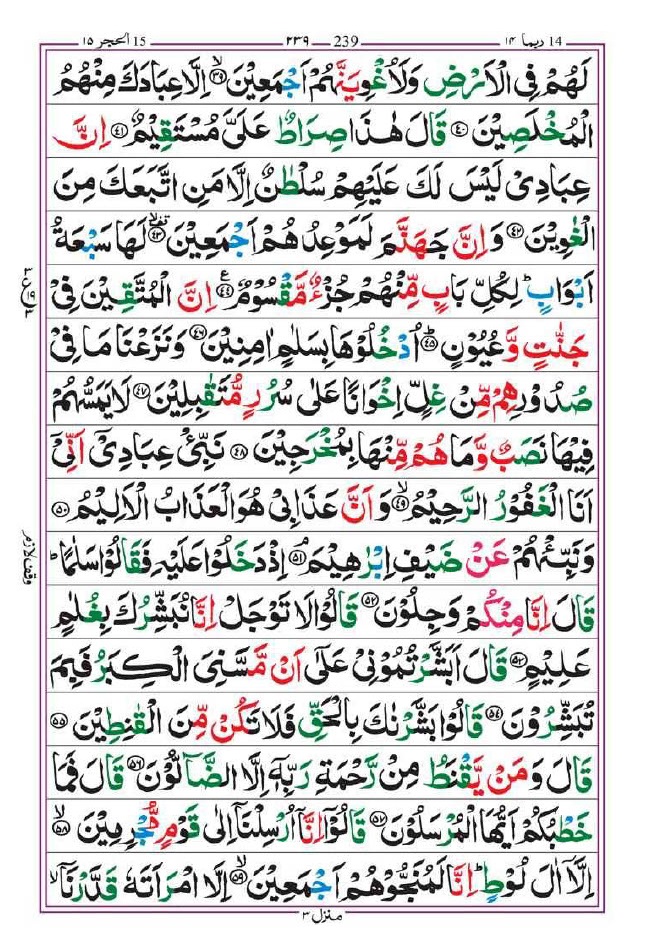 الحجر ١٥ 15 239 ٢٣٩ ربما ١٤ 14
لَهُمْ فِى الْاَرْضِ وَلَاُغْوِيَنَّهُمْ اَجْمَعِيْنَ ۙ‏﴿۳۹﴾ اِلَّا عِبَادَكَ مِنْهُمُ
الْمُخْلَصِيْنَ ﴿۴۰﴾ قَالَ هٰذَا صِرَاطٌ عَلَىَّ مُسْتَقِيْمٌ ﴿۴۱﴾ اِنَّ
عِبَادِىْ لَيْسَ لَكَ عَلَيْهِمْ سُلْطٰنٌ اِلَّا مَنِ اتَّبَعَكَ مِنَ
الْغٰوِيْنَ ﴿۴۲﴾ وَاِنَّ جَهَنَّمَ لَمَوْعِدُهُمْ اَجْمَعِيْنَ ۙ ﴿۴۳﴾ لَهَا سَبْعَةُ
اَبْوَابٍ ؕ لِكُلِّ بَابٍ مِّنْهُمْ جُزْءٌ مَّقْسُوْمٌ ﴿۴۴﴾ اِنَّ الْمُتَّقِيْنَ فِىْ
جَنّٰتٍ وَّعُيُوْنٍ ؕ ﴿۴۵﴾ اُدْخُلُوْهَا بِسَلٰمٍ اٰمِنِيْنَ ﴿۴۶﴾ وَنَزَعْنَا مَا فِىْ
صُدُوْرِهِمْ مِّنْ غِلٍّ اِخْوَانًا عَلٰى سُرُرٍ مُّتَقٰبِلِيْنَ ﴿۴۷﴾ لَا يَمَسُّهُمْ
فِيْهَا نَصَبٌ وَّمَا هُمْ مِّنْهَا بِمُخْرَجِيْنَ ﴿۴۸﴾ نَبِّئْ عِبَادِىْۤ اَنِّىْۤ
اَنَا الْغَفُوْرُ الرَّحِيْمُ ۙ ﴿۴۹﴾ وَاَنَّ عَذَابِىْ هُوَ الْعَذَابُ الْاَلِيْمُ ﴿۵۰﴾
وَنَبِّئْهُمْ عَنْ ضَيْفِ اِبْرٰهِيْمَ ۘ ﴿۵۱﴾ اِذْ دَخَلُوْا عَلَيْهِ فَقَالُوْا سَلٰمًا ؕ
قَالَ اِنَّا مِنْكُمْ وَجِلُوْنَ ﴿۵۲﴾ قَالُوْا لَا تَوْجَلْ اِنَّا نُبَشِّرُكَ بِغُلٰمٍ
عَلِيْمٍ ﴿۵۳﴾ قَالَ اَبَشَّرْتُمُوْنِىْ عَلٰٓى اَنْ مَّسَّنِىَ الْكِبَرُ فَبِمَ
تُبَشِّرُوْنَ ﴿۵۴﴾ قَالُوْا بَشَّرْنٰكَ بِالْحَقِّ فَلَا تَكُنْ مِّنَ الْقٰنِطِيْنَ ﴿۵۵﴾
قَالَ وَمَنْ يَّقْنَطُ مِنْ رَّحْمَةِ رَبِّهٖۤ اِلَّا الضَّآلُّوْنَ ﴿۵۶﴾ قَالَ فَمَا
خَطْبُكُمْ اَيُّهَا الْمُرْسَلُوْنَ ﴿۵۷﴾ قَالُوْۤا اِنَّاۤ اُرْسِلْنَاۤ اِلٰى قَوْمٍ مُّجْرِمِيْنَ ۙ ﴿۵۸﴾
اِلَّاۤ اٰلَ لُوْطٍ ؕ اِنَّا لَمُنَجُّوْهُمْ اَجْمَعِيْنَ ۙ ﴿۵۹﴾ اِلَّا امْرَاَتَهٗ قَدَّرْنَاۤ ۙ
منزل ٣
٣ ع ١٩ ٣
وقف لازم